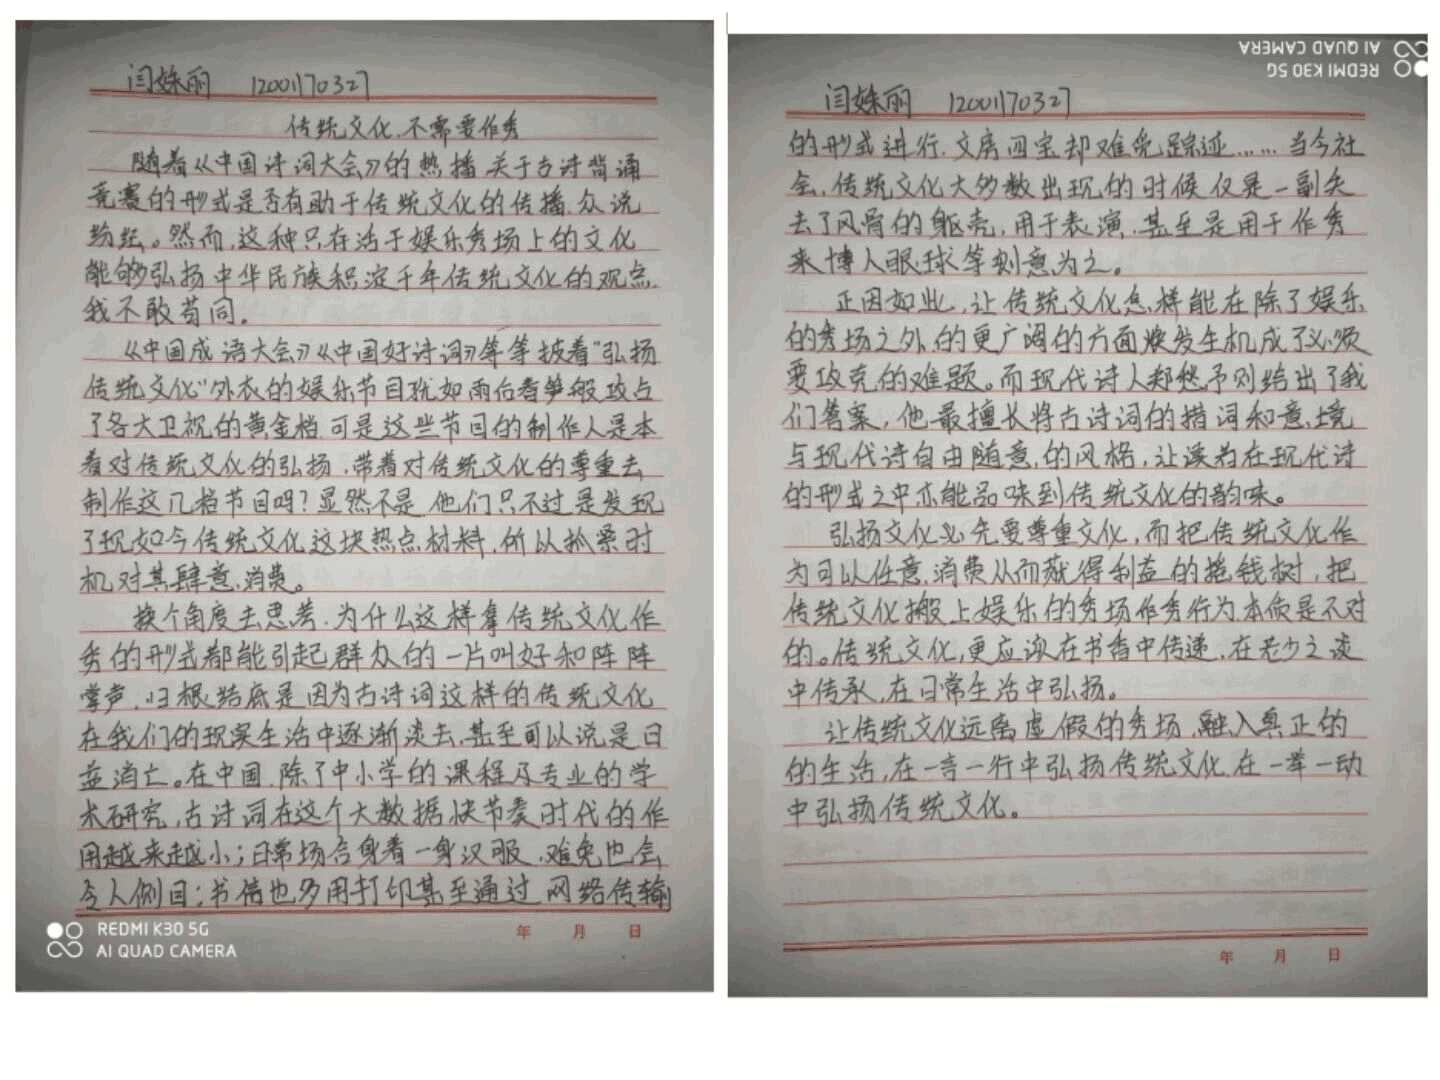 闫姝丽 1200170327
传统文化、不需要作秀
随着《中国诗词大会》的热播,关于古诗背诵
竞赛的形式是否有助于传统文化的传播,众说
纷纭。然而,这种只存活于娱乐秀场上的文化
能够弘扬中华民族积淀千年传统文化的观点,
我不敢苟同。
《中国成语大会》《中国好诗词》等等披着“弘扬
传统文化”外衣的娱乐节目犹如雨后春笋般攻占
了各大卫视的黄金档,可是这些节目的制作人是本
着对传统文化的弘扬,带着对传统文化的尊重去
制作这几档节目吗?显然不是,他们只不过是发现
了现如今传统文化这块热点材料,所以抓紧时
机对其肆意消费。
换个角度去思考,为什么这样拿传统文化作
秀的形式都能引起群众的一片叫好和阵阵
掌声,归根结底是因为古诗词这样的传统文化
在我们的现实生活中逐渐淡去,甚至可以说是日
益消亡。在中国,除了中小学的课程及专业的学
术研究,古诗词在这个大数据快节奏时代的作
用越来越小;日常场合身着一身汉服,难免也会
令人侧目;书信也多用打印甚至通过网络传输
REDMI K30 5G
AI QUAD CAMERA
年 月 日
闫姝丽 1200170327
的形式进行,文房四宝却难觅踪迹……当今社
会,传统文化大多数出现的时候仅是一副失
去了风骨的躯壳,用于表演,甚至是用于作秀
来博人眼球等刻意为之。
正因如此,让传统文化怎样能在除了娱乐
的秀场之外的更广阔的方面焕发生机成了必须
要攻克的难题。而现代诗人郑愁予则给出了我
们答案,他最擅长将古诗词的措词和意境
与现代诗自由随意的风格,让读者在现代诗
的形式之中亦能品味到传统文化的韵味。
弘扬文化必先要尊重文化,而把传统文化作
为可以任意消费从而获得利益的摇钱树,把
传统文化搬上娱乐的秀场作秀行为本质是不对
的。传统文化,更应该在书香中传递,在老少之谈
中传承,在日常生活中弘扬。
让传统文化远离虚假的秀场,融入真正的
的生活,在一言一行中弘扬传统文化,在一举一动
中弘扬传统文化。
年 月 日
REDMI K30 5G
AI QUAD CAMERA